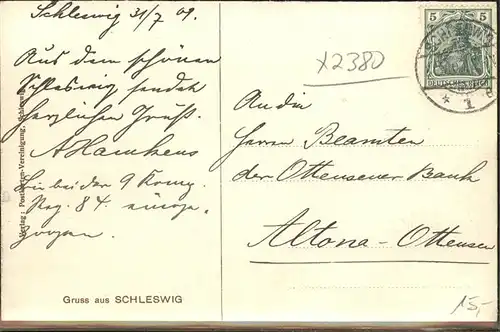 Schleswig 31/7 09.
Aus dem schönen
Schleswig sendet
herzlichen Gruß.
A Hamkens
Bin bei der 9 Komp.
Reg. 84. eingezogen.
Gruss aus SCHLESWIG
Verlag: Postkarten-Vereinigung, Schleswig
X2380
5 5
DEUTSCHES REICH
* 1
An die
Herren Beamten
der Ottensener Bank
Altona-Ottensen
15,-